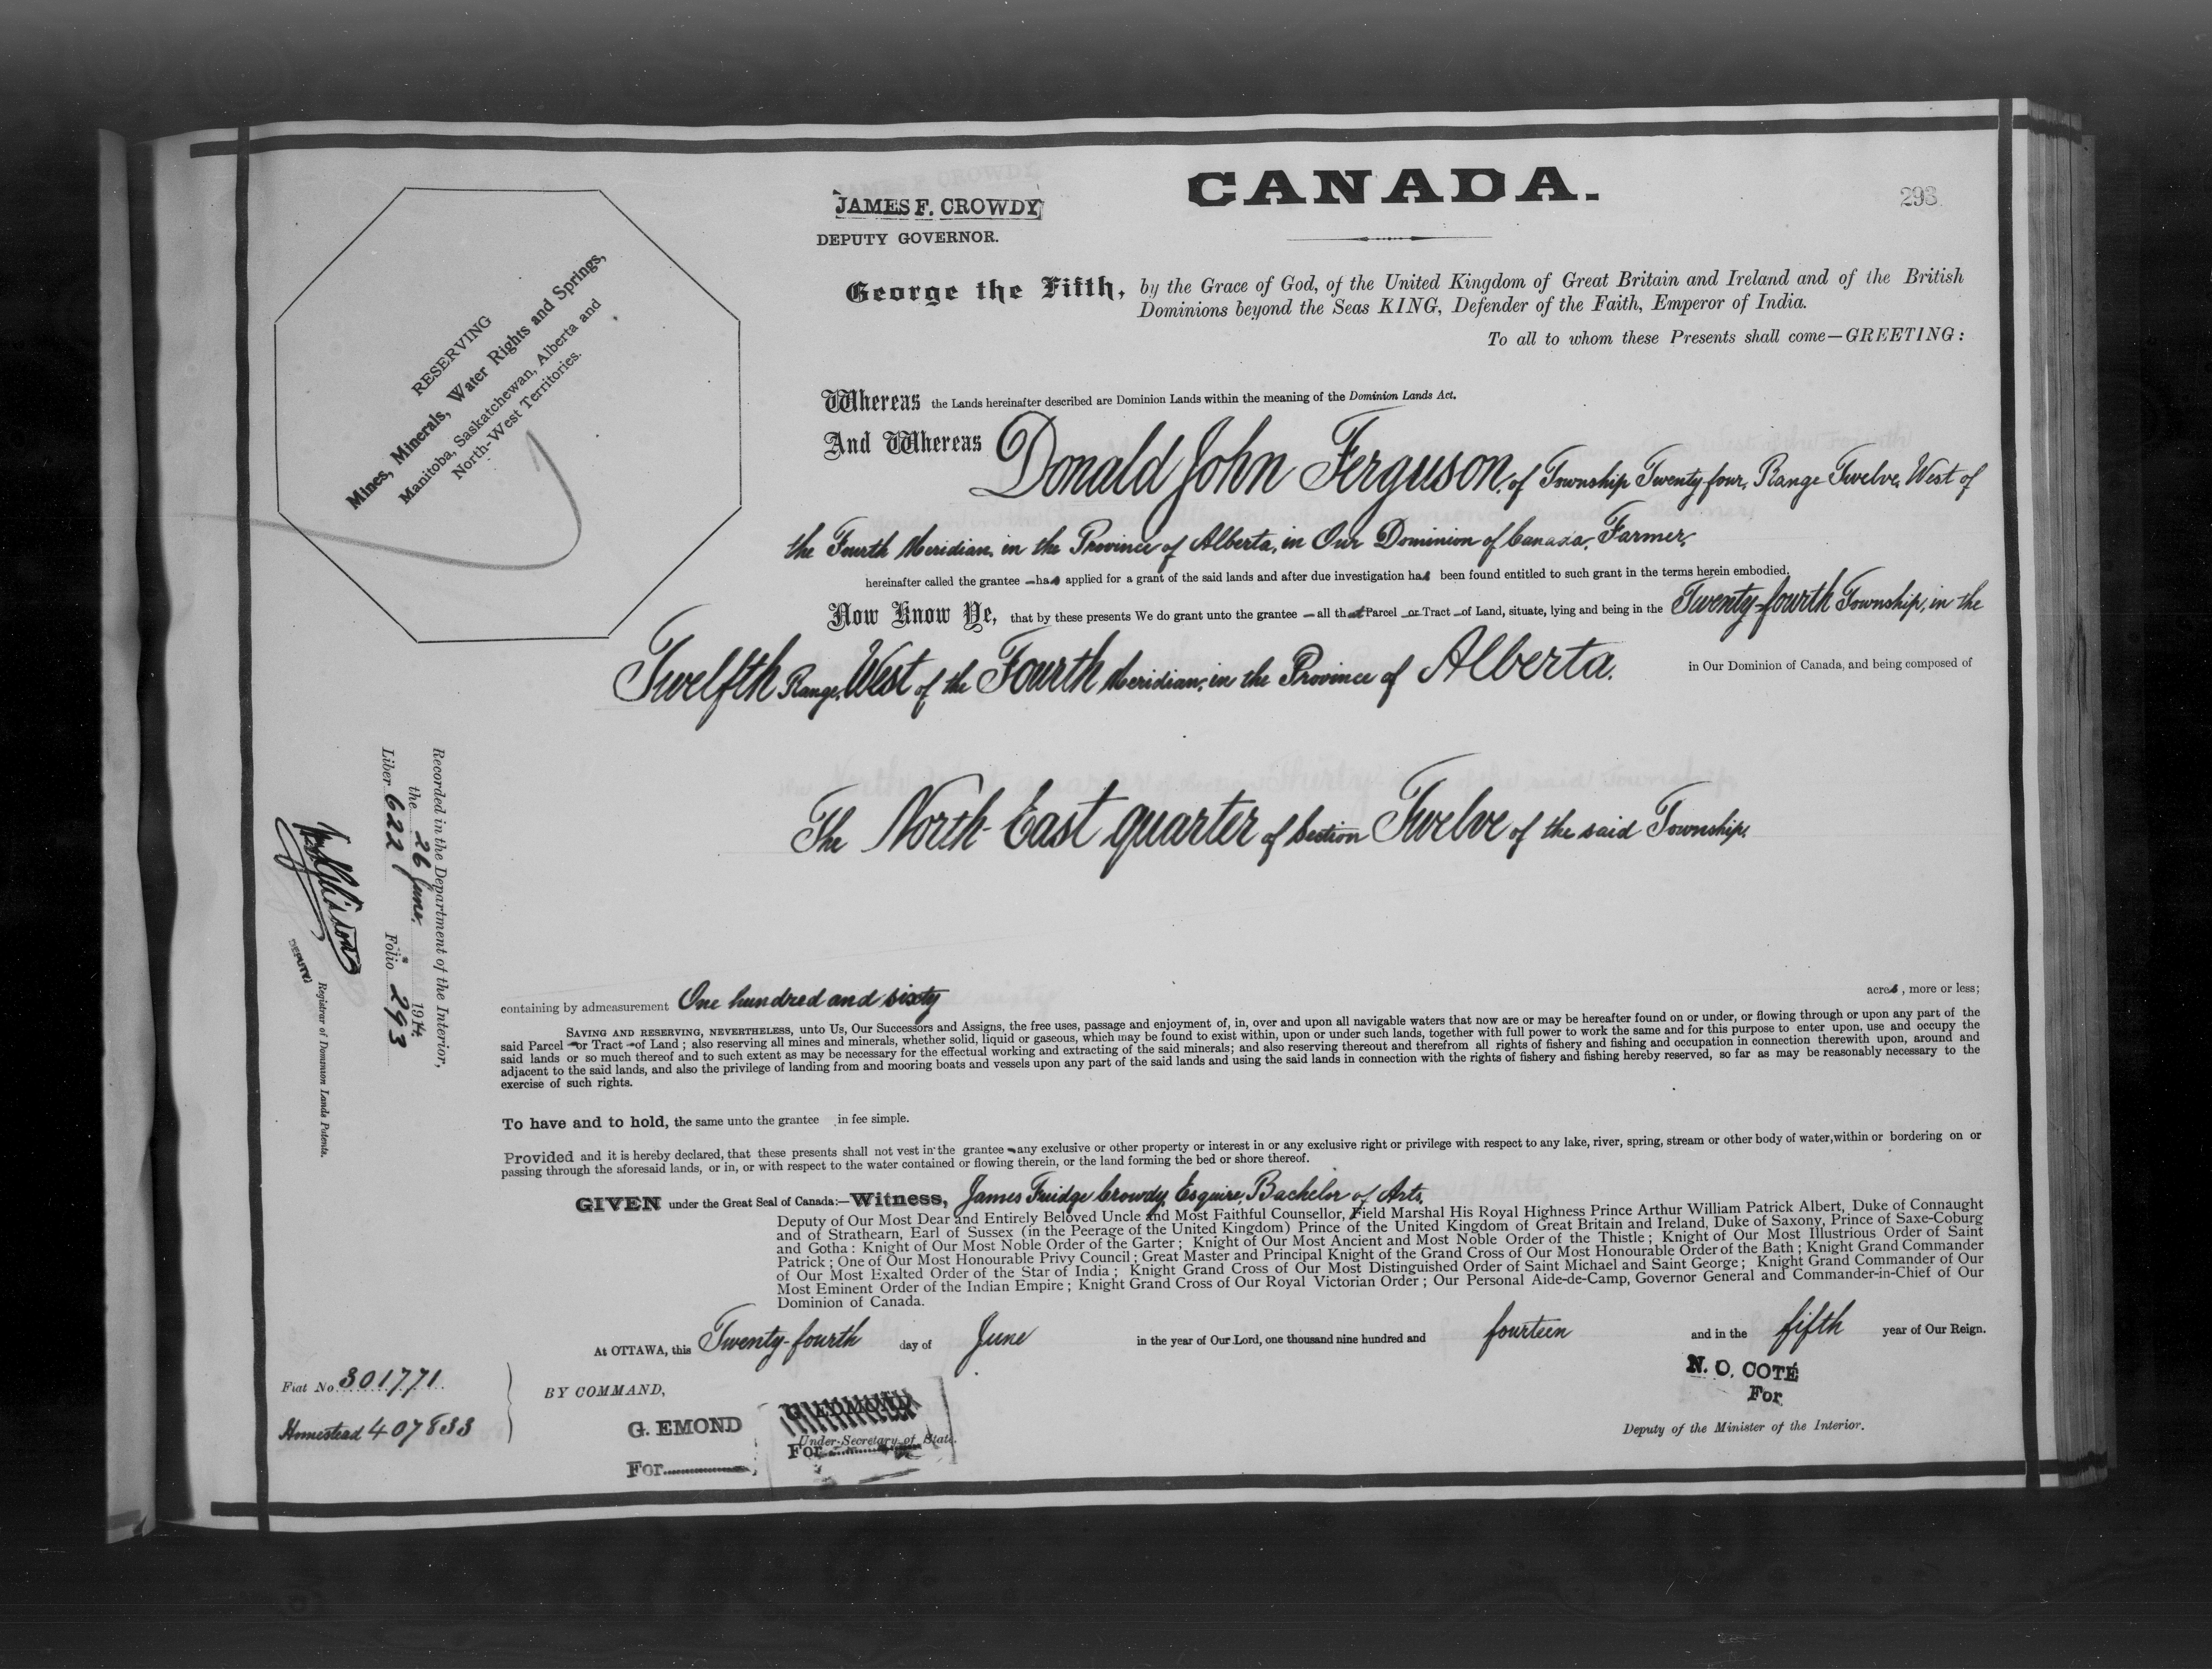 CANADA.
293
JAMES F. CROWDY
DEPUTY GOVERNOR.
George the Fifth, by the Grace of God, of the United Kingdom of Great Britain and Ireland and of the British
Dominions beyond the Seas KING, Defender of the Faith, Emperor of India.
To all to whom these Presents shall come—GREETING:
RESERVING
Mines, Minerals, Water Rights and Springs,
Manitoba, Saskatchewan, Alberta and
North-West Territories.
Whereas the Lands hereinafter described are Dominion Lands within the meaning of the Dominion Lands Act.
And Whereas Donald John Ferguson, of Township Twenty-four, Range Twelve, West of
the Fourth Meridian, in the Province of Alberta, in Our Dominion of Canada, Farmer,
hereinafter called the grantee – has applied for a grant of the said lands and after due investigation has been found entitled to such grant in the terms herein embodied.
Now Know Ye, that by these presents We do grant unto the grantee – all that Parcel or Tract of Land, situate, lying and being in the Twenty-fourth Township, in the
Twelfth Range, West of the Fourth Meridian, in the Province of Alberta, in Our Dominion of Canada, and being composed of
The North-East quarter of Section Twelve of the said Township,
containing by admeasurement One hundred and sixty acres, more or less;
SAVING AND RESERVING, NEVERTHELESS, unto Us, Our Successors and Assigns, the free uses, passage and enjoyment of, in, over and upon all navigable waters that now are or may be hereafter found on or under, or flowing through or upon any part of the
said Parcel or Tract of Land; also reserving all mines and minerals, whether solid, liquid or gaseous, which may be found to exist within, upon or under such lands, together with full power to work the same and for this purpose to enter upon, use and occupy the
said lands or so much thereof and to such extent as may be necessary for the effectual working and extracting of the said minerals; and also reserving thereout and therefrom all rights of fishery and fishing and occupation in connection therewith upon, around and
adjacent to the said lands, and also the privilege of landing from and mooring boats and vessels upon any part of the said lands and using the said lands in connection with the rights of fishery and fishing hereby reserved, so far as may be reasonably necessary to the
exercise of such rights.
To have and to hold, the same unto the grantee in fee simple.
Provided and it is hereby declared, that these presents shall not vest in the grantee any exclusive or other property or interest in or any exclusive right or privilege with respect to any lake, river, spring, stream or other body of water, within or bordering on or
passing through the aforesaid lands, or in, or with respect to the water contained or flowing therein, or the land forming the bed or shore thereof.
GIVEN under the Great Seal of Canada:—Witness, James Fuidge Crowdy, Esquire, Bachelor of Arts,
Deputy of Our Most Dear and Entirely Beloved Uncle and Most Faithful Counsellor, Field Marshal His Royal Highness Prince Arthur William Patrick Albert, Duke of Connaught
and of Strathearn, Earl of Sussex (in the Peerage of the United Kingdom) Prince of the United Kingdom of Great Britain and Ireland, Duke of Saxony, Prince of Saxe-Coburg
and Gotha: Knight of Our Most Noble Order of the Garter; Knight of Our Most Ancient and Most Noble Order of the Thistle; Knight of Our Most Illustrious Order of Saint
Patrick; One of Our Most Honourable Privy Council; Great Master and Principal Knight of the Grand Cross of Our Most Honourable Order of the Bath; Knight Grand Commander
of Our Most Exalted Order of the Star of India; Knight Grand Cross of Our Most Distinguished Order of Saint Michael and Saint George; Knight Grand Commander of Our
Most Eminent Order of the Indian Empire; Knight Grand Cross of Our Royal Victorian Order; Our Personal Aide-de-Camp, Governor General and Commander-in-Chief of Our
Dominion of Canada.
At OTTAWA, this Twenty-fourth day of June in the year of Our Lord, one thousand nine hundred and fourteen and in the fifth year of Our Reign.
BY COMMAND,
G. EMOND
For
G. EDMOND
Under-Secretary of State.
For
N. O. COTÉ
For
Deputy of the Minister of the Interior.
Fiat No. 301771
Homestead 407833
Recorded in the Department of the Interior,
the 26 June 1914
Liber 622 Folio 293
DEPUTY
Registrar of Dominion Lands Patents.